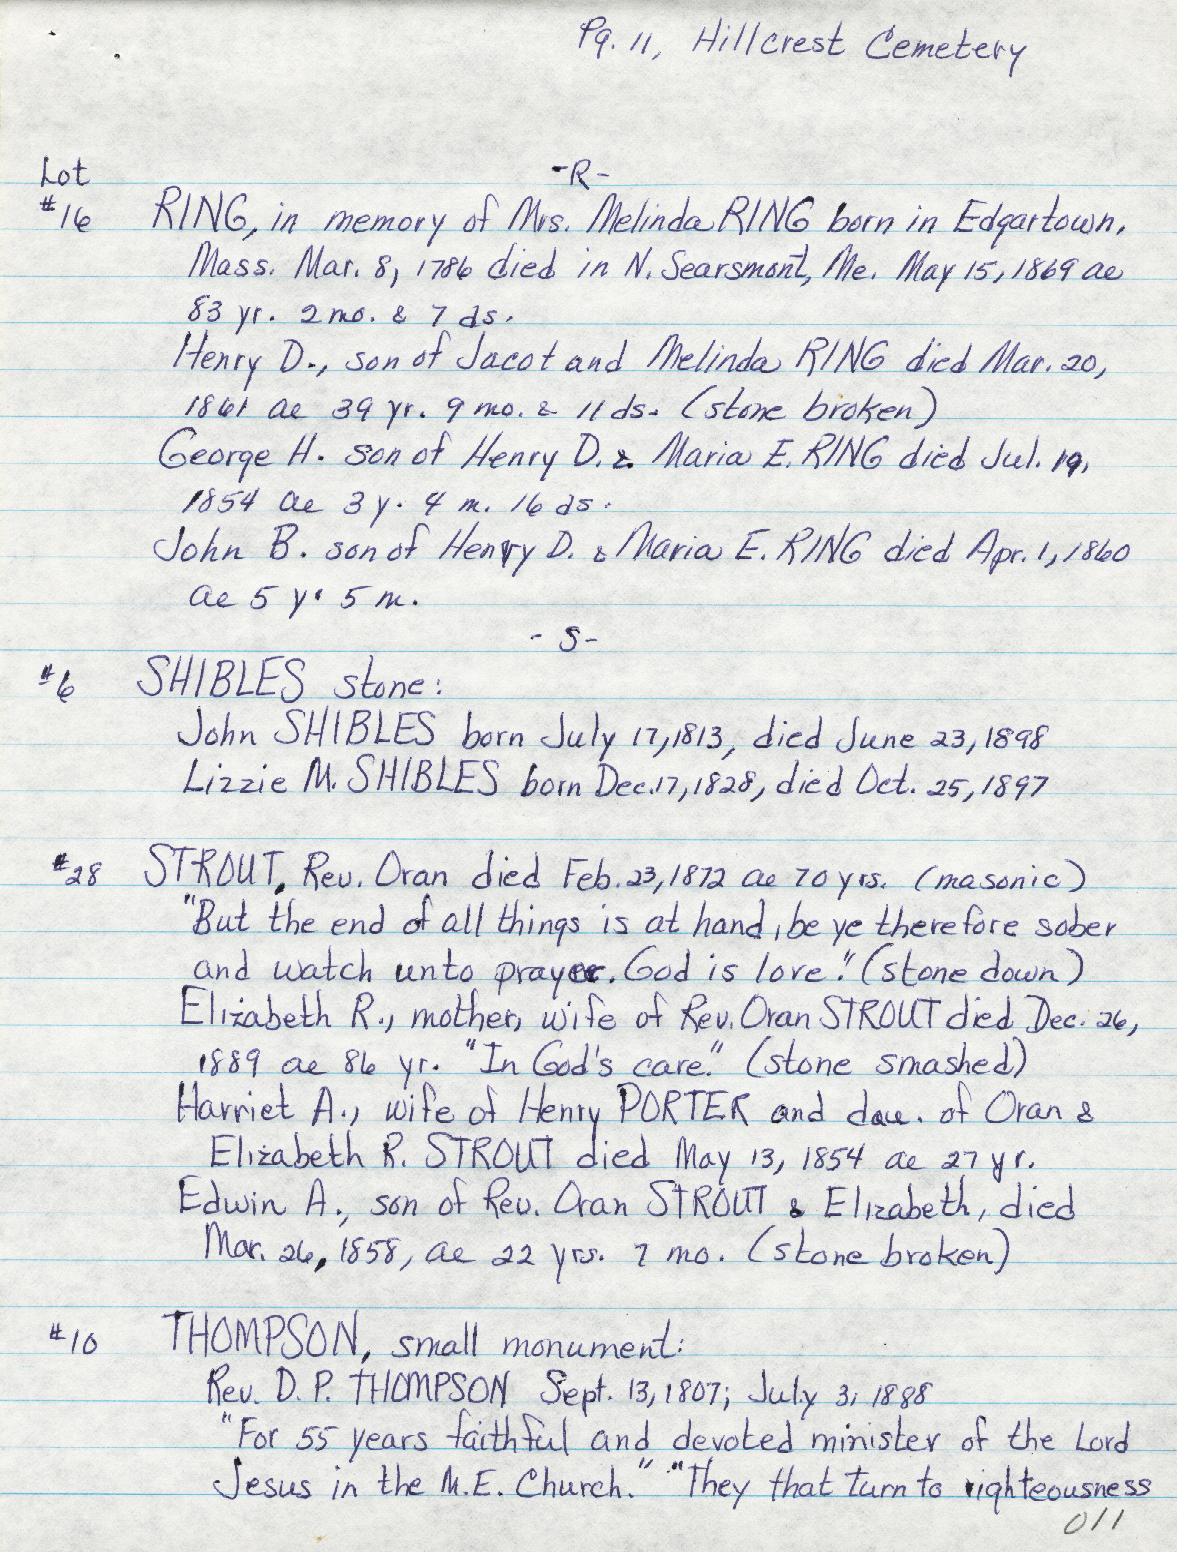 Pg. 11, Hillcrest Cemetery
Lot -R-
#16 RING, in memory of Mrs. Melinda RING born in Edgartown,
Mass. Mar. 8, 1786 died in N. Searsmont, Me. May 15, 1869 ae
83 yr. 2 mo. & 7 ds.
Henry D., son of Jacot and Melinda RING died Mar. 20,
1861 ae 39 yr. 9 mo. & 11 ds. (stone broken)
George H. son of Henry D. & Maria E. RING died Jul. 19,
1854 ae 3 y. 4 m. 16 ds.
John B. son of Henry D. & Maria E. RING died Apr. 1, 1860
ae 5 y. 5 m.
- S -
#6 SHIBLES stone:
John SHIBLES born July 17, 1813, died June 23, 1898
Lizzie M. SHIBLES born Dec. 17, 1828, died Oct. 25, 1897
#28 STROUT, Rev. Oran died Feb. 23, 1872 ae 70 yrs. (masonic)
"But the end of all things is at hand, be ye therefore sober
and watch unto prayer. God is love." (stone down)
Elizabeth R., mother, wife of Rev. Oran STROUT died Dec. 26,
1889 ae 86 yr. "In God's care." (stone smashed)
Harriet A., wife of Henry PORTER and dau. of Oran &
Elizabeth R. STROUT died May 13, 1854 ae 27 yr.
Edwin A., son of Rev. Oran STROUT & Elizabeth, died
Mar. 26, 1858, ae 22 yrs. 7 mo. (stone broken)
#10 THOMPSON, small monument:
Rev. D. P. THOMPSON Sept. 13, 1807; July 3, 1888
"For 55 years faithful and devoted minister of the Lord
Jesus in the M.E. Church." "They that turn to righteousness
011